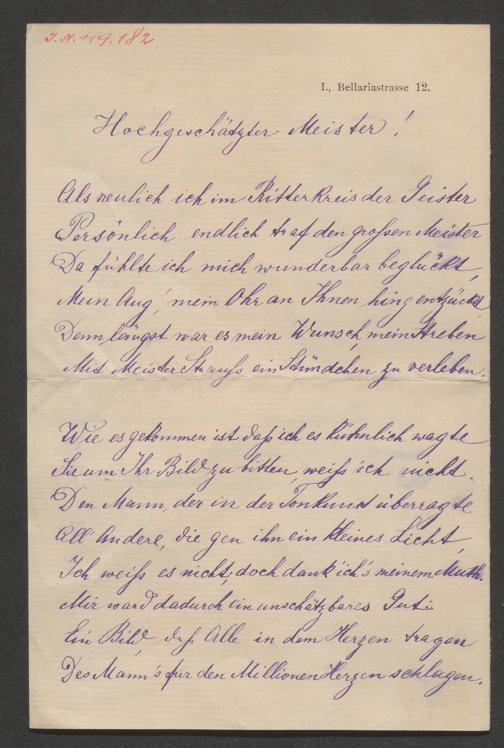 I.N. 119.182
I., Bellariastrasse 12.
Hochgeschätzter Meister!
Als neulich ich im Ritterkreis der Geister
Persönlich endlich traf den grossen Meister
Da fühlte ich mich wunderbar beglückt,
Mein Aug', mein Ohr an Ihnen hing entzückt
Denn längst war es mein Wunsch, mein Streben
Mit Meister Strauss ein Stündchen zu verleben.
Wie es gekommen ist daß ich es kühnlich wagte
Sie um Ihr Bild zu bitten, weiß ich nicht.
Den Mann, der in der Tonkunst überragte
All' Andere, die gen ihn ein kleines Licht,
Ich weiß es nicht, doch dank' ich's meinem Muth.
Mir ward dadurch ein unschätzbares Gut:
Ein Bild, daß Alle in dem Herzen tragen
Des Mann's für den Millionen Herzen schlagen.